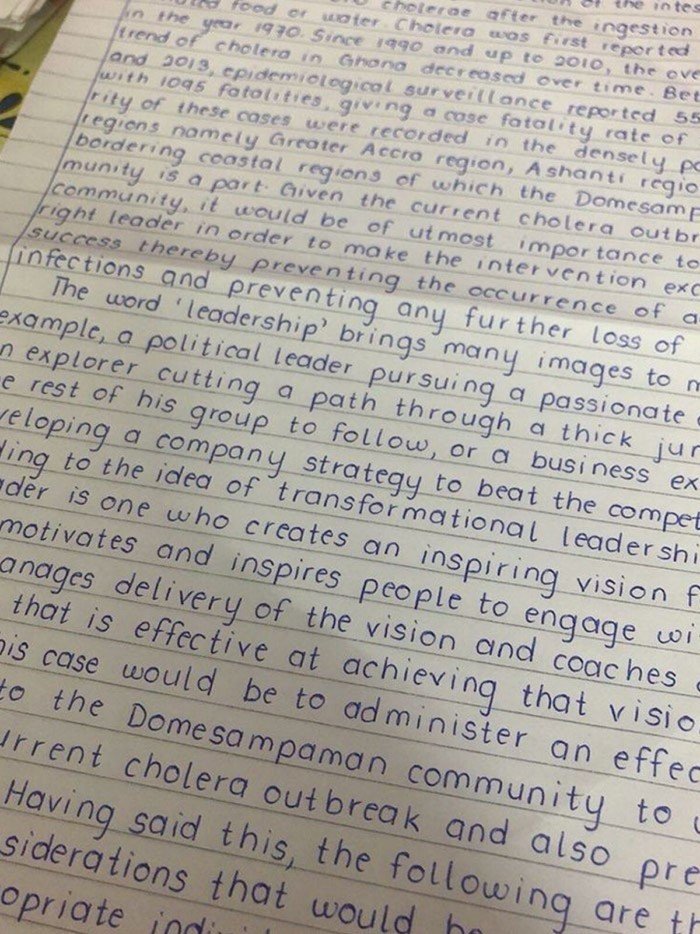 cholerae after the ingestion
food or water. Cholera was first reported
in the year 1970. Since 1990 and up to 2010, the ove
trend of cholera in Ghana decreased over time. Bet
and 2013, epidemiological surveillance reported 55
with 1095 fatalities, giving a case fatality rate of
rity of these cases were recorded in the densely po
regions namely Greater Accra region, Ashanti regio
bordering coastal regions of which the Domesam
munity is a part. Given the current cholera outbr
community, it would be of utmost importance to
right leader in order to make the intervention exc
success thereby preventing the occurrence of a
infections and preventing any further loss of
The word 'leadership' brings many images to m
example, a political leader pursuing a passionate
n explorer cutting a path through a thick jun
e rest of his group to follow, or a business ex
veloping a company strategy to beat the compet
ding to the idea of transformational leadershi
ader is one who creates an inspiring vision f
motivates and inspires people to engage wi
anages delivery of the vision and coaches
that is effective at achieving that visio
his case would be to administer an effec
to the Domesampaman community to
urrent cholera outbreak and also pre
Having said this, the following are th
siderations that would be
opriate